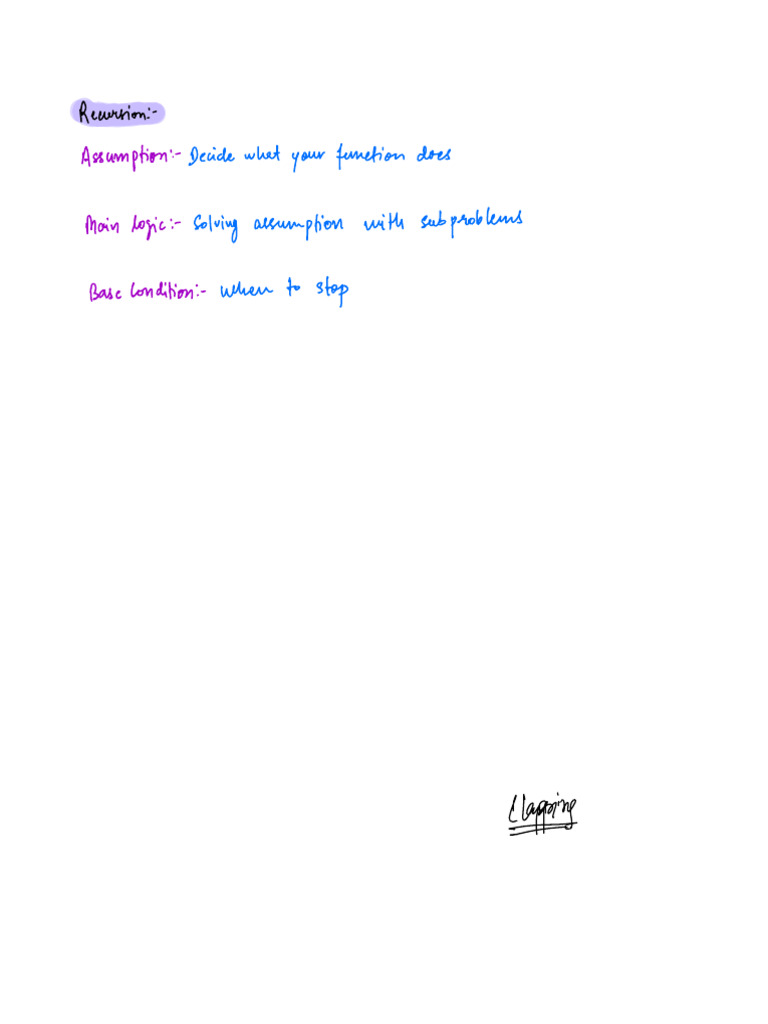 Recursion:-
Assumption:- Decide what your function does
Main Logic:- Solving assumption with subproblems
Base Condition:- when to stop
Clapping